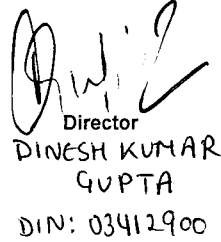 Director
DINESH KUMAR
GUPTA
DIN: 03412900